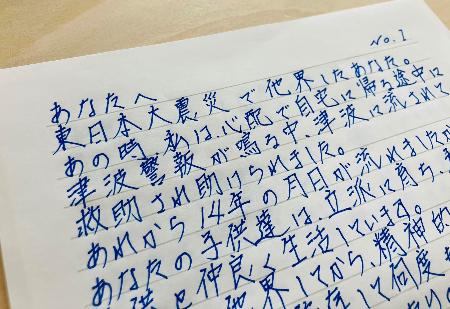 No.1
あなたへ
東日本大震災で他界したあなた。
あの時私は心配で自宅に帰る途中に
津波警報が鳴る中、津波に流されて
救助され助けられました。
あれから14年の月日が流れましたが
あなたの子供達は、立派に育ち、
と仲良く生活している。
他界してから、精神的
して何度も